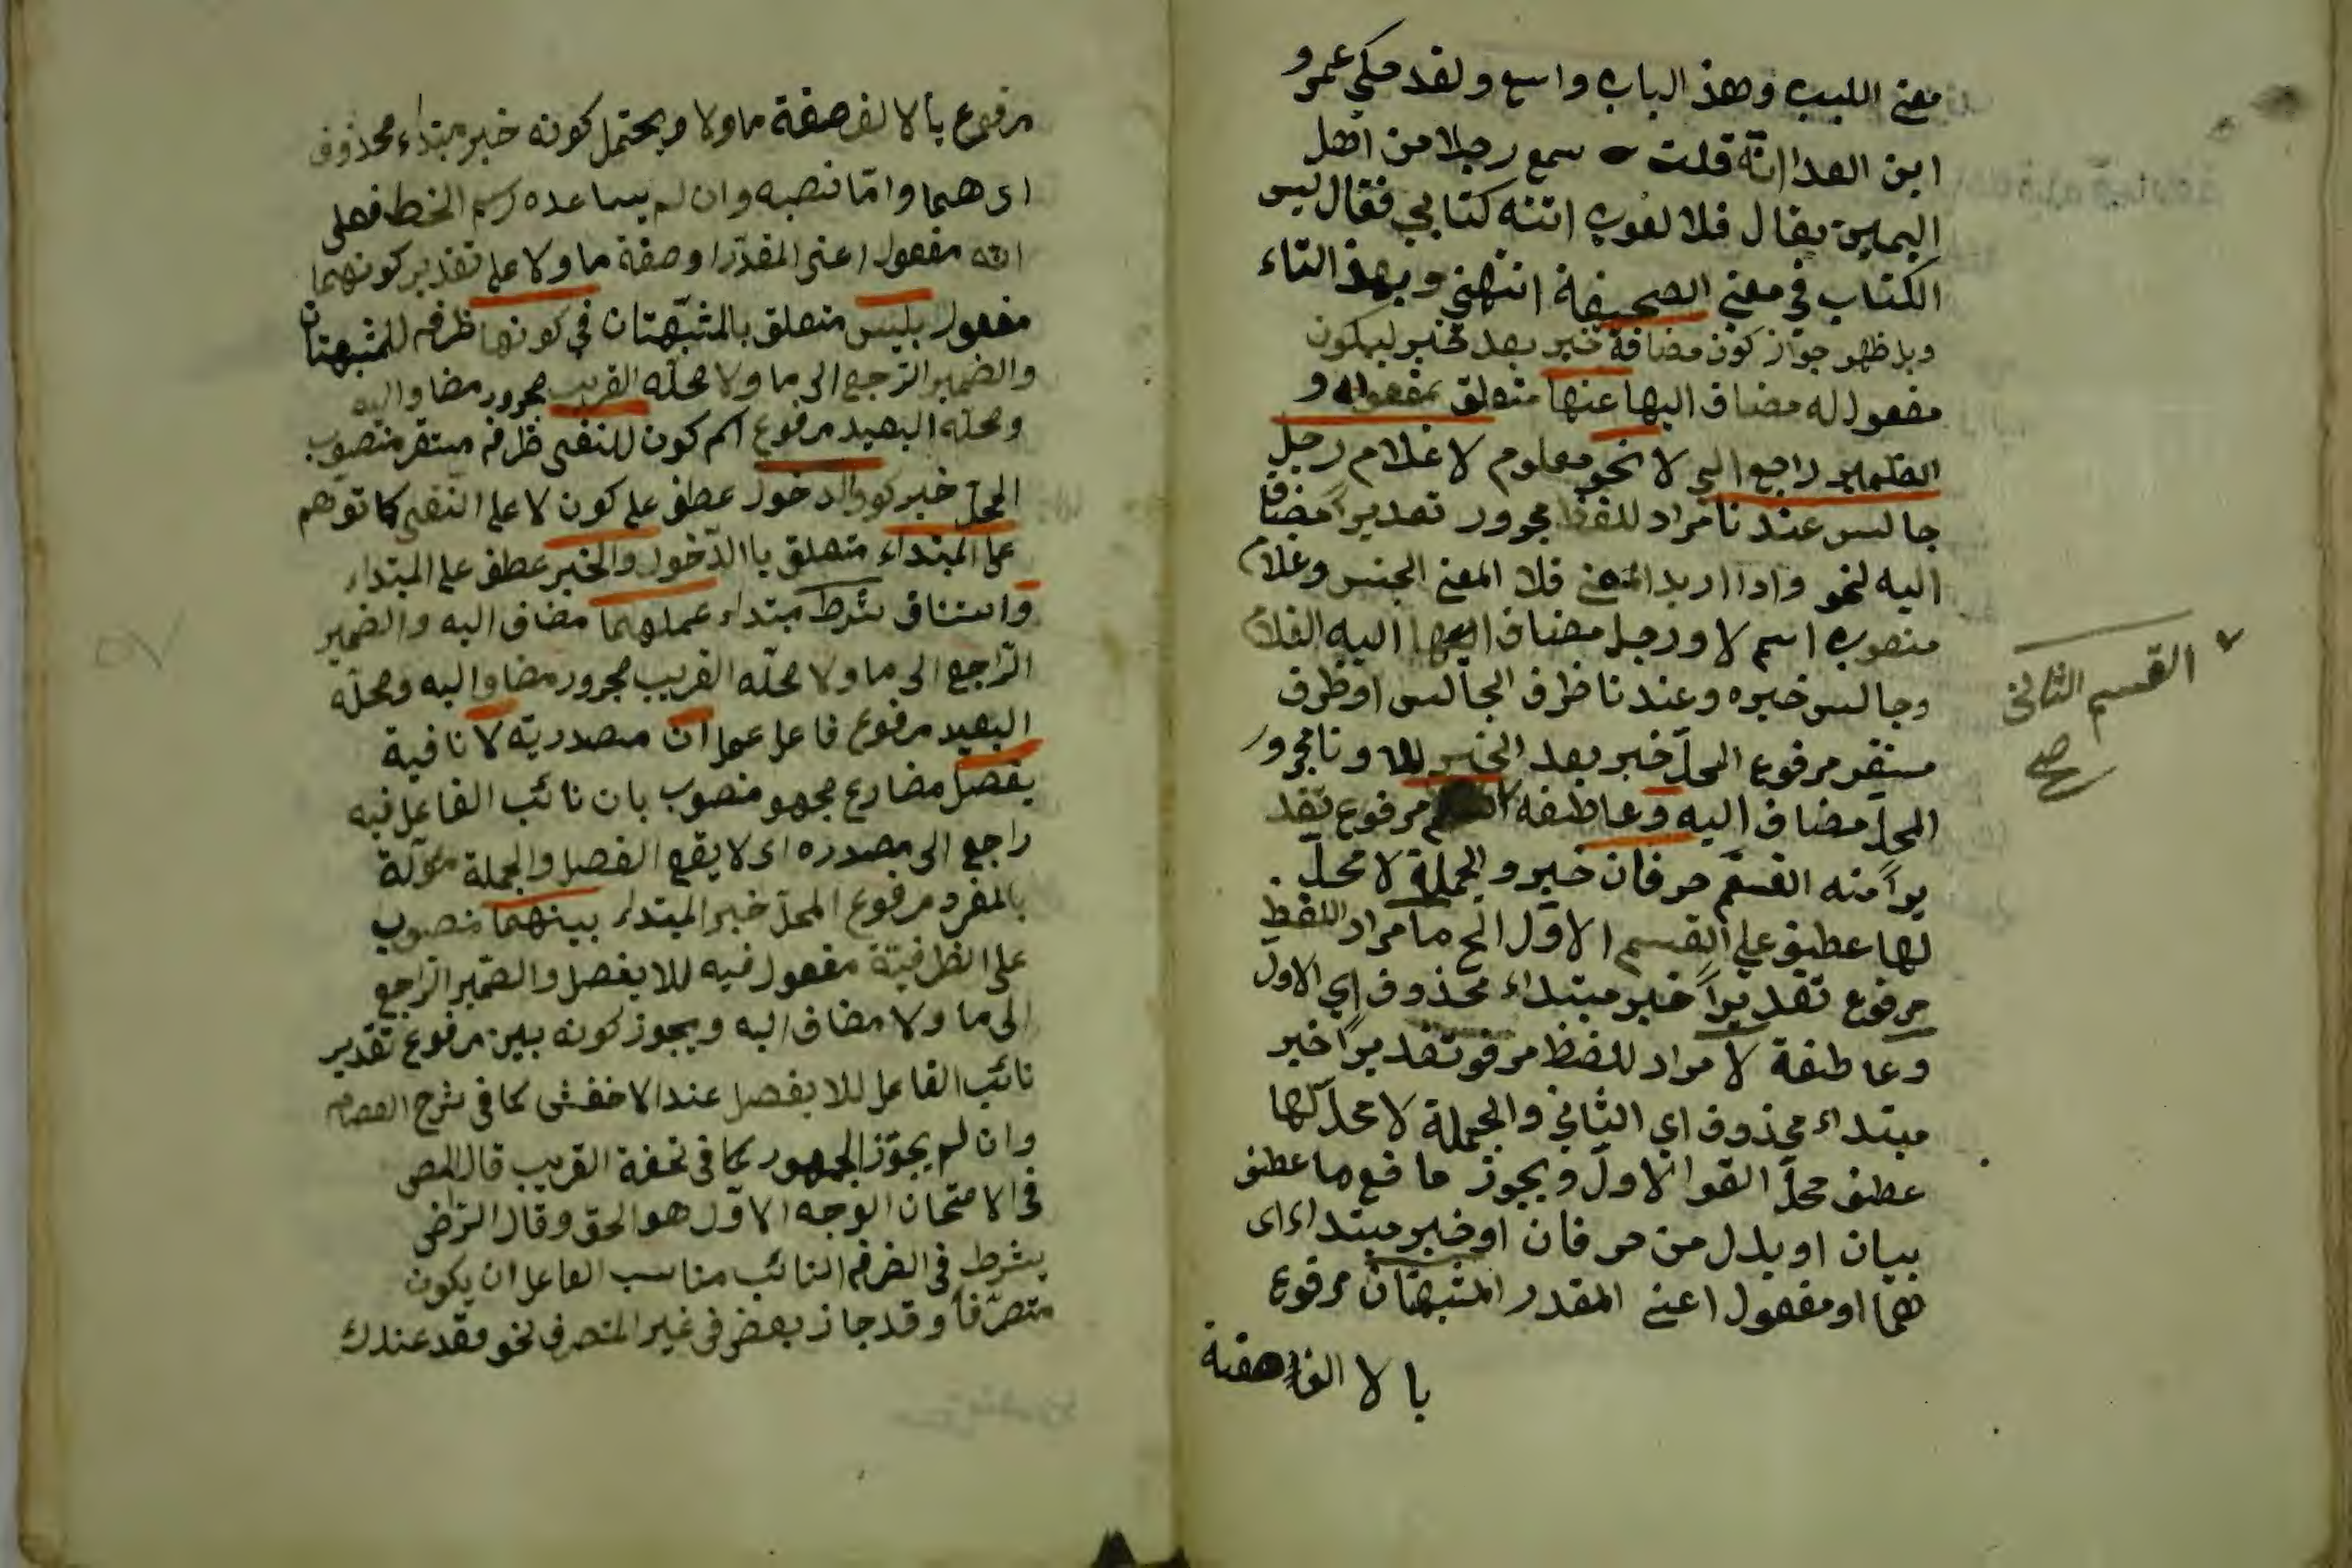 مغني اللبيب وهذ الباب واسع ولقد حكي عمرو
ابن العدا انّه قلت سمع رجلا من اهل
اليمين يقال فلا لغوب اتته كتابي فقال ليس
الكتاب في معني الصحيفة انتهي وبهذ التاء
وبل ظهر جواز كون مضافة خبر بعد خبر ليكون
مفعول له مضاف اليها عنها متعلق بمفعوله و
الضمير راجع الي لا نحو معلوم لا غلام رجل
جالس عندنا مراد للفظ مجرور تقديراً مضا
اليه لنحو واذا اريد المعني فلا المعني الجنس وغلام
منصوب اسم لا ورجل مضاف اليه الغلام
وجالس خبره وعندنا ظرف الجالس او ظرف
مستقر مرفوع المحلّ خبر بعد الخبر للا ونا مجرور
المحلّ مضاف اليه وعاطفه مرفوع تقد
يراً منه القسم حرفان خبر والجملة لا محلّ
لها عطيف علي القسم الاوّل الخ ما مراد اللفظ
مرفوع تقديراً خبر مبتداء محذوف اي الاول
وعاطفة لا مراد للفظ مرفو تقديراً خبر
مبتداء محذوف اي الثاني والجملة لا محلّ لها
عطف محلّ القوا الاولّ ويجوز ما فع ما عطف
بيان او بدل من حرفان او خبر مبتداء اى
هما او مفعول اعني المقدر المشبهتان مرفوع
بالا الف صفة
القسم الثاني
صح
مرفوع بالالف صفة ما ولا ويحتمل كونه خبر مبتداء محذوف
اى هما وامّا نصبه وان لم يساعده رسم الخط فعلى
انّه مفعول اعنى المقدّر او صفة ما ولا على تقدير كونهما
مفعول بليس متعلق بالمشبّهتان في كونها ظرف للمشبهتان
والضمير الرّجع الى ما ولا محلّه القريب مجرور مضاو اليه
ومحلّه البعيد مرفوع اسم كون للنفى ظرف مستقر منصوب
المحلّ خبر كو والدخول عطف على كون لا على النّفى كما توهم
على المبتداء متعلق باالدّخول والخبر عطف على المبتداء
واستناف شرط مبتداء عملهما مضاف اليه والضمير
الرّاجع الى ما ولا محلّه القريب مجرور مضاو اليه ومحلّه
البعيد مرفوع فاعل عمل ان مصدريّة لا نافية
يفصل مضارع مجهو منصوب بان نائب الفاعل فيه
راجع الى مصدره اى لا يقع الفصل والجملة مؤلّة
بالمفرد مرفوع المحلّ خبر المبتداء بينهما منصوب
على الظرفيّة مفعول فيه للا يفصل والضمير الرّاجع
الى ما ولا مضاف اليه ويجوز كونه بين مرفوع تقدير
نائب الفاعل للا يفصل عند الاخفش كما فى شرح العصام
وان لم يجوّز الجمهور كما فى تحفة القريب قال المص
فى الامتحان الوجه الاوّل هو الحق وقال الرّضى
يشرط فى الضرف النائب مناسب الفاعل ان يكون
متصرّفاً وقد جاز بعض فى غير المتصرف نحو فقد عندك